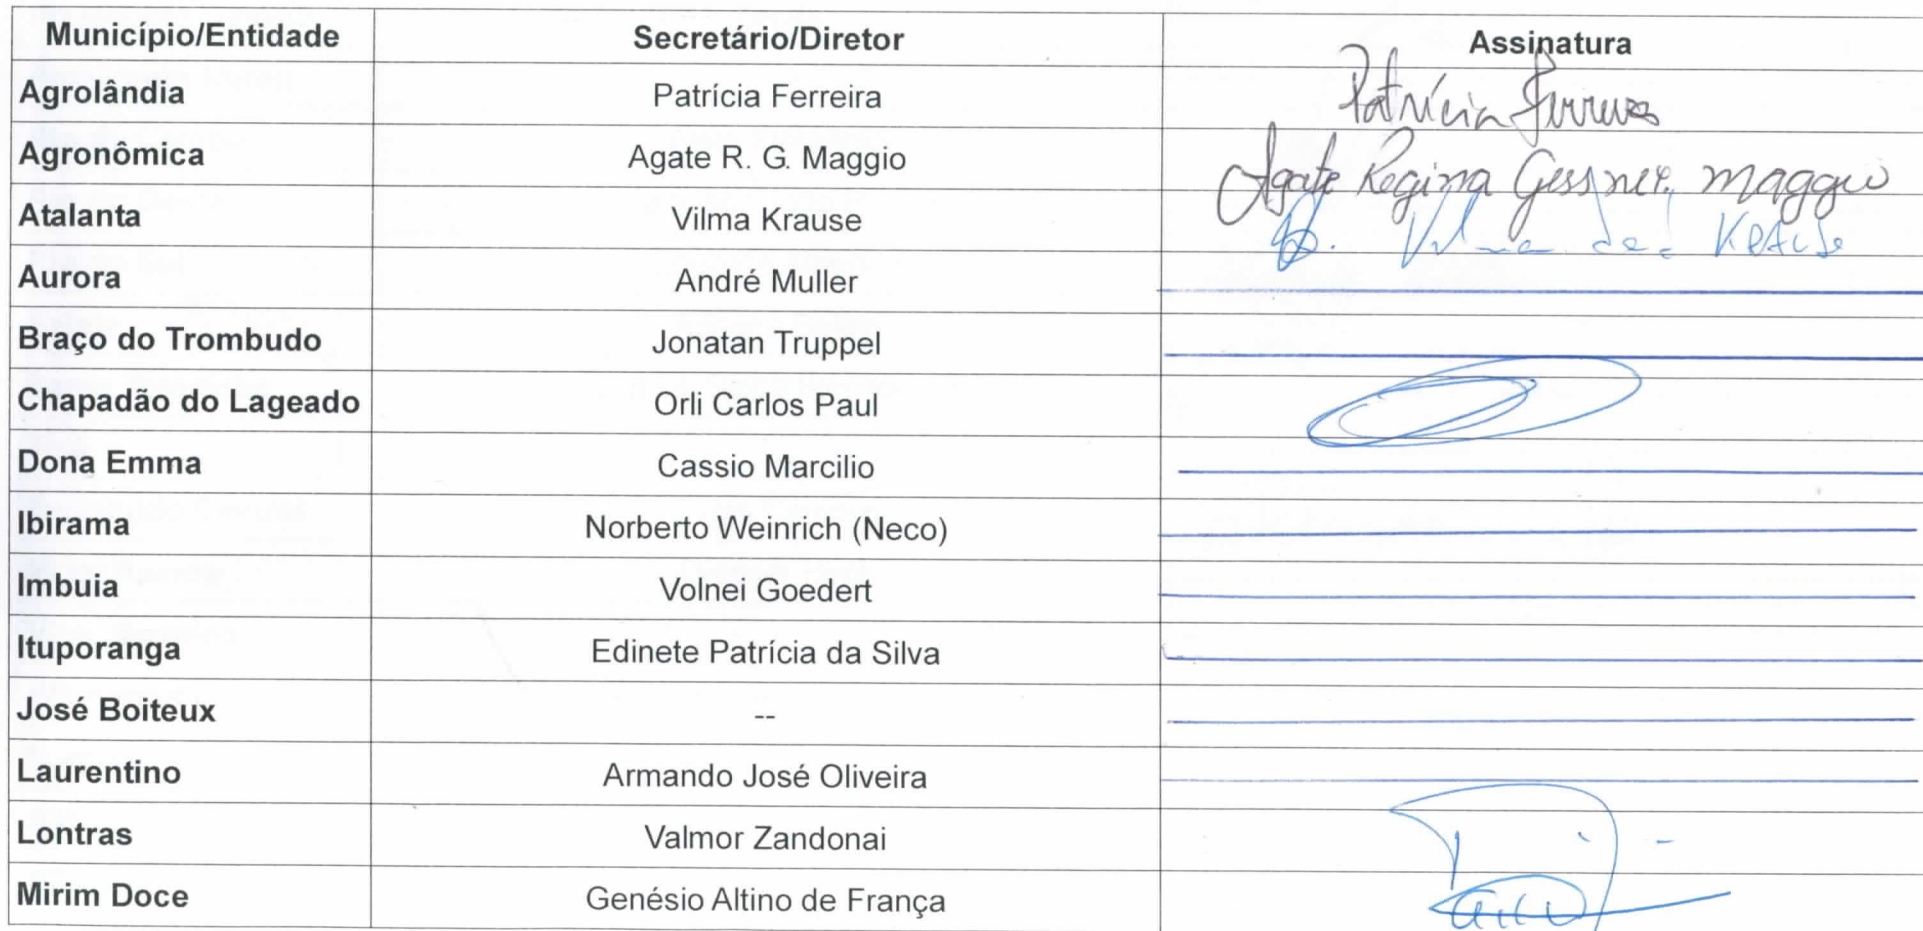 Município/Entidade Secretário/Diretor Assinatura
Agrolândia Patrícia Ferreira Patrícia Ferreira
Agronômica Agate R. G. Maggio Agate Regina Gessner Maggio
Atalanta Vilma Krause Vilma Krause
Aurora André Muller
Braço do Trombudo Jonatan Truppel
Chapadão do Lageado Orli Carlos Paul
Dona Emma Cassio Marcilio
Ibirama Norberto Weinrich (Neco)
Imbuia Volnei Goedert
Ituporanga Edinete Patrícia da Silva
José Boiteux --
Laurentino Armando José Oliveira
Lontras Valmor Zandonai
Mirim Doce Genésio Altino de França